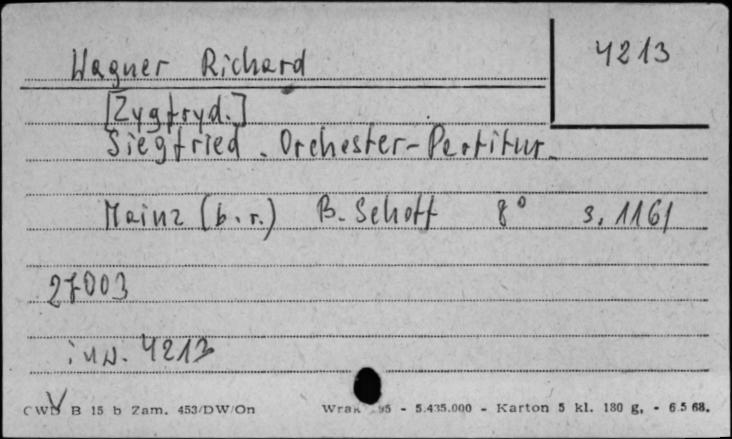 4213
Wagner Richard
[Zygfryd.]
Siegfried. Orchester-Partitur.
Mainz (b. r.) B. Schott 8° s. 1161
27003
inw. 4213
CWD B 15 b Zam. 453/DW/On - 5.435.000 - Karton 5 kl. 180 g, - 6.5 68.